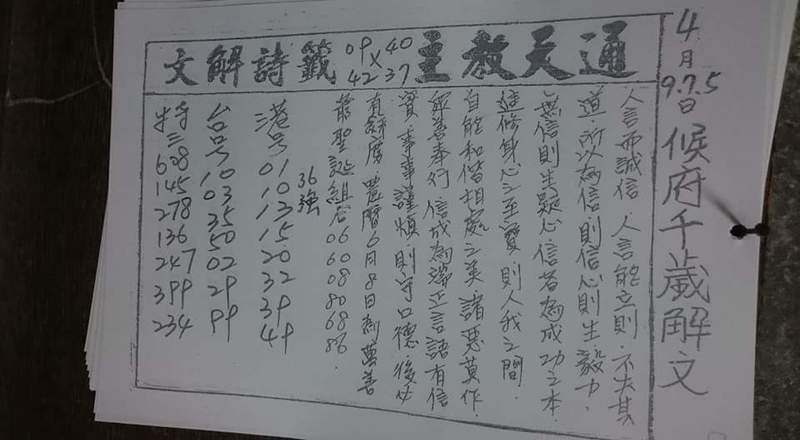 4月9.7.5日 候府千歲解文
通天教主 09 X 40 42 37 籤詩解文
人言而誠信．人言能立則．不失其
道．所以為信則信心則生毅力．
無信則生疑心信者為成功之本．
進修身心之至寶．則人我之間．
自能和偕相處之美 諸惡莫作．
眾善奉行 信成為端正言語有信
實．事事謹慎．則守口德．後必
有 農曆6月8日 萬善
聖誕組合 06 60 08 80 68 86．
36強
港号 01 10 13 15 20 32 39 49
台号 10 03 35 50 02 29 99
特三 628 145 278 136 247 399 234